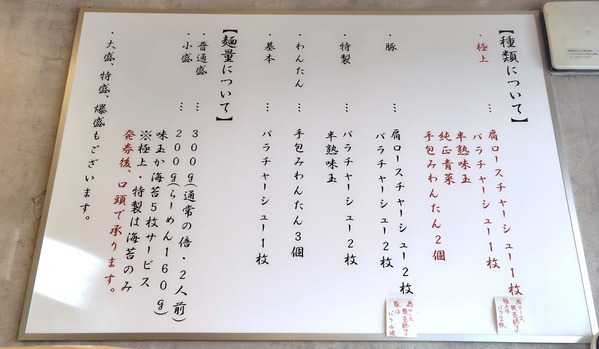 【種類について】
・極上 … 肩ロースチャーシュー1枚
バラチャーシュー1枚
半熟味玉
純正青菜
手包みわんたん2個
・豚 … 肩ロースチャーシュー2枚
バラチャーシュー2枚
・特製 … バラチャーシュー2枚
半熟味玉
・わんたん … 手包みわんたん3個
・基本 … バラチャーシュー1枚
【麺量について】
・普通盛 … 300g(通常の倍・2人前)
・小盛 … 200g(らーめん160g)
味玉か海苔5枚サービス
※極上・特製は海苔のみ
発券後、口頭で承ります。
・大盛、特盛、爆盛もございます。
肩ロース